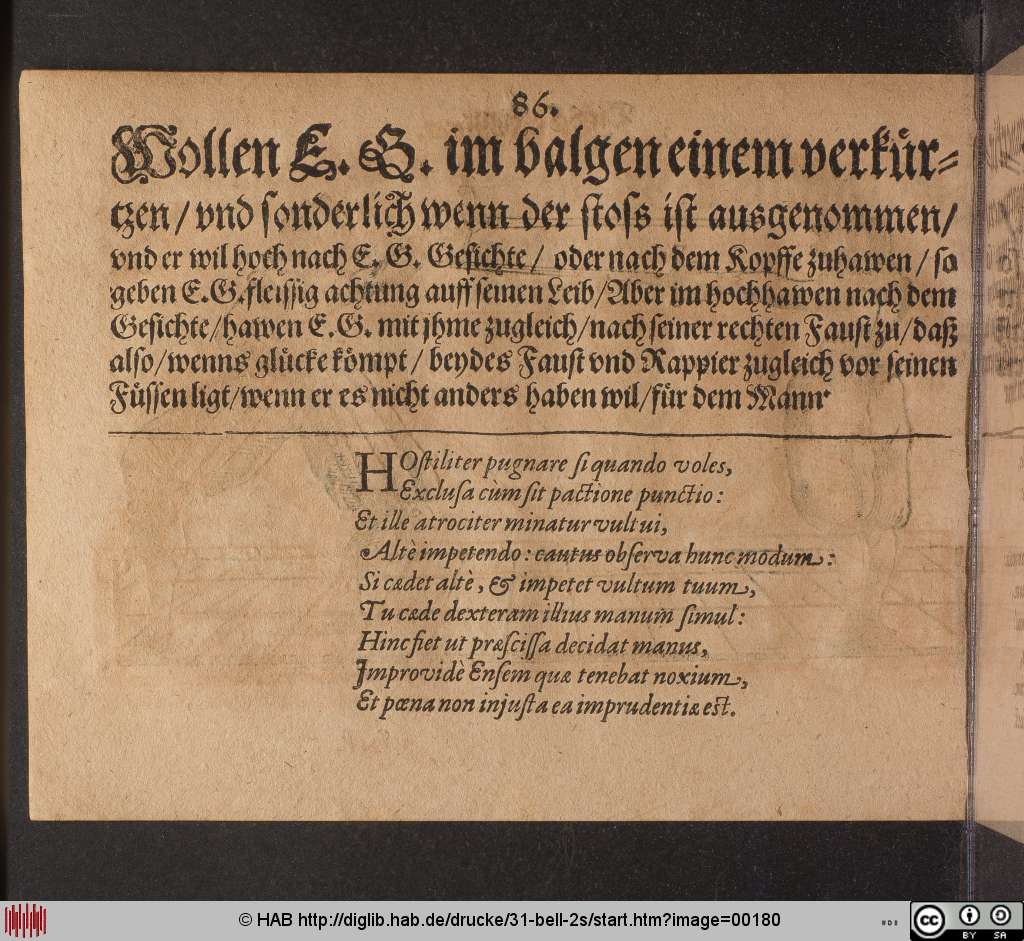 86.
Wollen E. G. im balgen einem verkuͤr⸗
tzen / vnd sonderlich wenn der stoss ist ausgenommen /
vnd er wil hoch nach E. G. Gesichte / oder nach dem Kopffe zuhawen / so
geben E. G. fleissig achtung auff seinen Leib / Aber im hochhawen nach dem
Gesichte / hawen E. G. mit jhme zugleich / nach seiner rechten Faust zu / daß
also / wenns gluͤcke koͤmpt / beydes Faust vnd Rappier zugleich vor seinen
Fuͤssen ligt / wenn er es nicht anders haben wil / fuͤr dem Mann.
HOſtiliter pugnare ſi quando voles,
Excluſa cùm ſit pactione punctio:
Et ille atrociter minatur vultui,
Altè impetendo: cautus obſerva hunc modum:
Si cædet altè, & impetet vultum tuum,
Tu cæde dexteram illius manum ſimul:
Hinc fiet ut præſciſſa decidat manus,
Improvidè Enſem quæ tenebat noxium,
Et pœna non injuſta ea imprudentiæ eſt.
© HAB http://diglib.hab.de/drucke/31-bell-2s/start.htm?image=00180
cc
BY SA